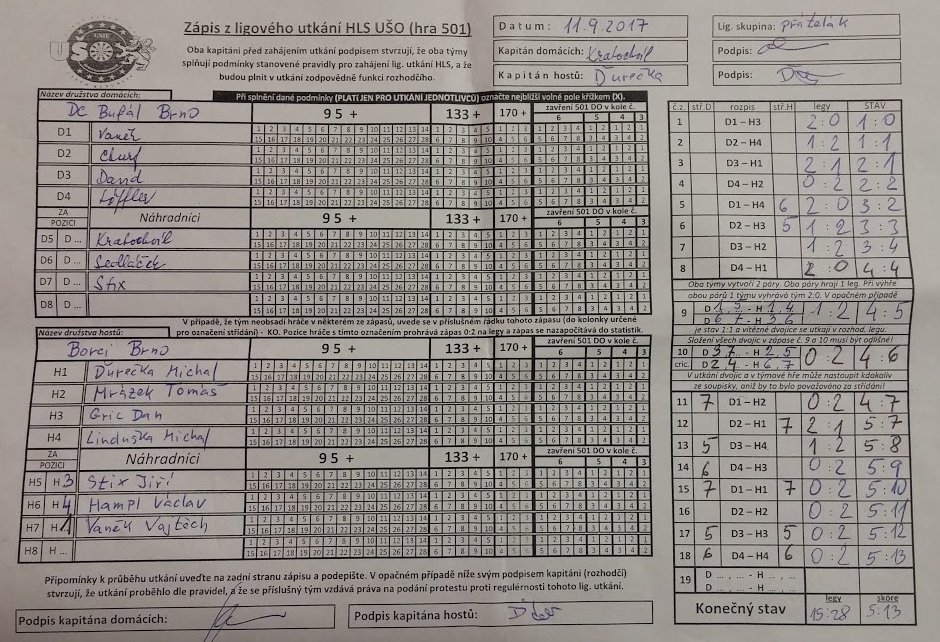 UNIE
UŠO
Zápis z ligového utkání HLS UŠO (hra 501)
Oba kapitáni před zahájením utkání podpisem stvrzují, že oba týmy
splňují podmínky stanovené pravidly pro zahájení lig. utkání HLS, a že
budou plnit v utkání zodpovědně funkci rozhodčího.
Datum: 11.9.2017
Kapitán domácích: Kratochvíl
Kapitán hostů: Ďurečka
Lig. skupina: přátelák
Podpis:
Podpis:
Název družstva domácích:
DC Bufál Brno
Při splnění dané podmínky (PLATÍ JEN PRO UTKÁNÍ JEDNOTLIVCŮ) označte nejbližší volné pole křížkem (X).
95 + 133 + 170 + zavření 501 DO v kole č.
6 5 4 3
D1 Vaněk
D2 Churý
D3 David
D4 Löffler
ZA POZICI Náhradníci 95 + 133 + 170 + zavření 501 DO v kole č.
6 5 4 3
D5 D ... Kratochvíl
D6 D ... Sedláček
D7 D ... Stix
D8 D ...
V případě, že tým neobsadí hráče v některém ze zápasů, uvede se v příslušném řádku tohoto zápasu (do kolonky určené
pro označení střídání) - KO. Pozice hráče s tímto označením prohrává zápas 0:2 na legy a zápas se nazapočítává do statistik.
Název družstva hostů:
Borci Brno
95 + 133 + 170 + zavření 501 DO v kole č.
6 5 4 3
H1 Ďurečka Michal
H2 Mrázek Tomáš
H3 Gric Dan
H4 Linduška Michal
ZA POZICI Náhradníci 95 + 133 + 170 + zavření 501 DO v kole č.
6 5 4 3
H5 H 3 Stix Jiří
H6 H 4 Hampl Václav
H7 H 1 Vaněk Vojtěch
H8 H ...
Připomínky k průběhu utkání uveďte na zadní stranu zápisu a podepište. V opačném případě níže svým podpisem kapitáni (rozhodčí)
stvrzují, že utkání proběhlo dle pravidel, a že se příslušný tým vzdává práva na podání protestu proti regulérnosti tohoto lig. utkání.
Podpis kapitána domácích:
Podpis kapitána hostů:
č.z. stř.D rozpis stř.H legy STAV
1 D1 – H3 2 : 0 1 : 0
2 D2 – H4 1 : 2 1 : 1
3 D3 – H1 2 : 1 2 : 1
4 D4 – H2 0 : 2 2 : 2
5 D1 – H4 6 2 : 0 3 : 2
6 D2 – H3 5 1 : 2 3 : 3
7 D3 – H2 1 : 2 3 : 4
8 D4 – H1 2 : 0 4 : 4
Oba týmy vytvoří 2 páry. Oba páry hrají 1 leg. Při výhře
obou párů 1 týmu vyhrává tým 2:0. V opačném případě
9 1 : 2 4 : 5
je stav 1:1 a vítězné dvojice se utkají v rozhod. legu.
Složení všech dvojic v zápase č. 9 a 10 musí být odlišné!
10 cric. D 3,7 - H 2,5 0 : 2 4 : 6
D 2,4 - H 6,7
V utkání dvojic a v týmové hře může nastoupit kdokoliv
ze soupisky, aniž by to bylo považováno za střídání!
11 7 D1 – H2 0 : 2 4 : 7
12 D2 – H1 7 2 : 1 5 : 7
13 5 D3 – H4 1 : 2 5 : 8
14 6 D4 – H3 0 : 2 5 : 9
15 7 D1 – H1 7 0 : 2 5 : 10
16 D2 – H2 0 : 2 5 : 11
17 5 D3 – H3 5 0 : 2 5 : 12
18 6 D4 – H4 6 0 : 2 5 : 13
19 D ... , ... - H ... , ...
D ... , ... - H ... , ...
Konečný stav legy 15:28 skore 5:13